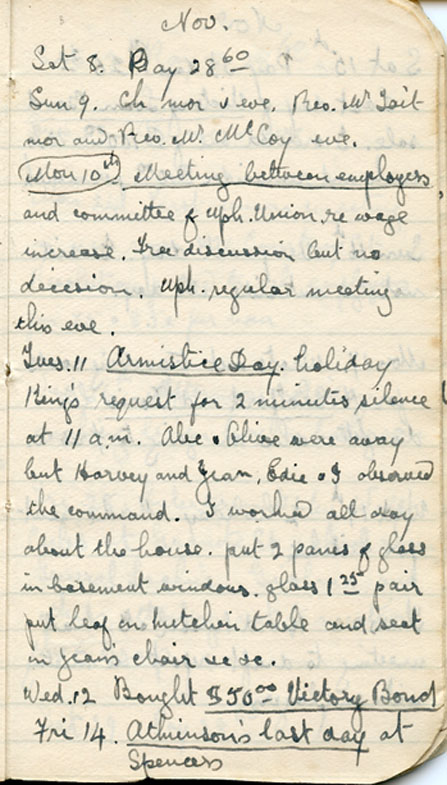 Nov.
Sat 8. Pay 28 60
Sun 9. Ch. mor & eve. Rev. Mr Tait
mor and Rev. Mr. McCoy eve.
Mon 10th. Meeting between employers
and committee of Uph. Union re wage
increase. Free discussion but no
decision. Uph. regular meeting
this eve.
Tues. 11 Armistice Day. holiday
King's request for 2 minutes silence
at 11 a.m. Alec & Olive were away
but Harvey and Jean, Edie & I observed
the command. I worked all day
about the house. put 2 panes of glass
in basement windows. glass 1 25 pair
put leaf on kitchen table and seat
in Jean's chair
Wed. 12 Bought $50 00 Victory Bond
Fri 14. Atkinson's last day at
Spencers